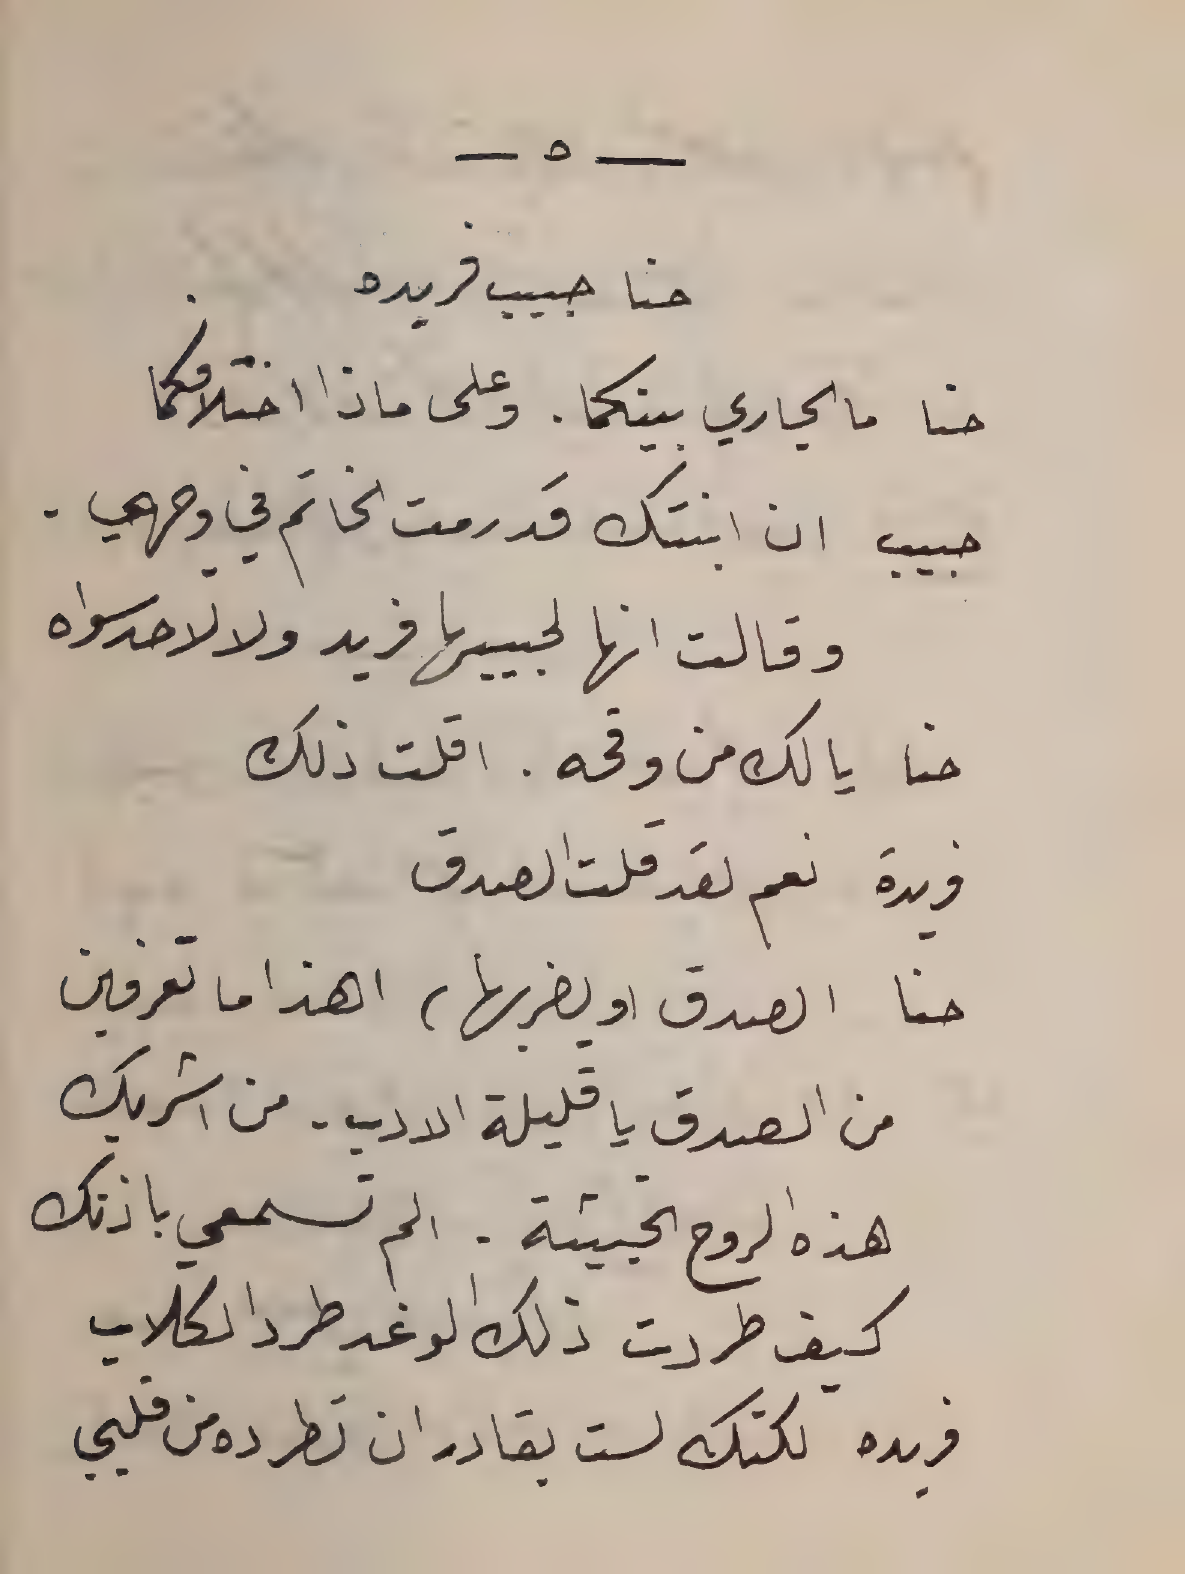 — ٥ —
حنا حبيب فريده
حنا ما الجاري بينكما . وعلى ماذا اختلافكما
حبيب ان ابنتك قد رمت الخاتم في وجهي .
وقالت انها لحبيبها فريد ولا لاحد سواه
حنا يا لك من وقحه . اقلت ذلك
فريدة نعم لقد قلت الصدق
حنا الصدق (ويضربها) اهذا ما تعرفين
من الصدق يا قليلة الادب . من اشربك
هذه الروح الخبيثة . الم تسمعي باذنك
كيف طردت ذلك الوغد طرد الكلاب
فريده لكنك لست بقادر ان تطرده من قلبي